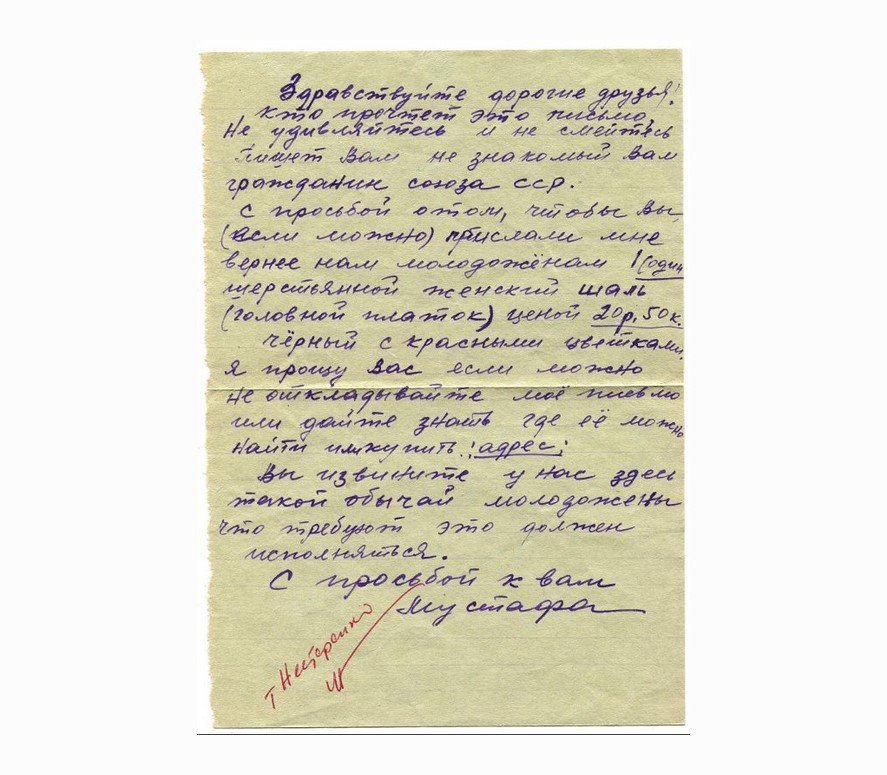 Здравствуйте дорогие друзья!
кто прочтет это письмо,
Не удивляйтесь и не смейтесь
Пишет Вам не знакомый Вам
гражданин союза ССР.
С просьбой отом, чтобы Вы,
(если можно) прислали мне
вернее нам молодожёнам 1 (один
шерстьянной женский шаль
(головной платок) ценой 20р, 50к.
чёрный с красными цветками,
Я прошу Вас если можно
не откладывайте моё письмо
или дайте знать где её можно
найти или купить. адрес;
Вы извините у нас здесь
такой обычай молодожены
что требуют это должен
исполняться.
С просьбой к вам
Мустафа
т Нестеренко